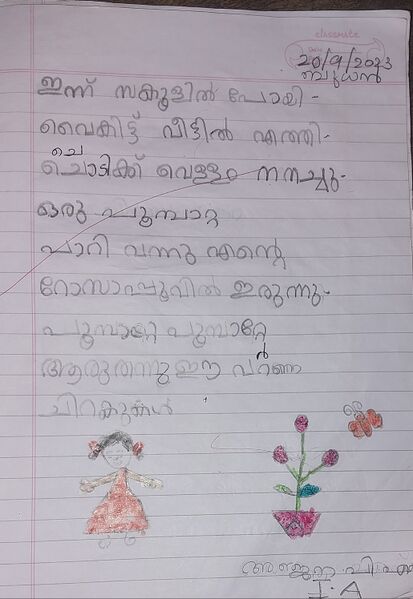 classmate
20/9/2023
ബുധൻ
ഇന്ന് സ്കൂളിൽ പോയി -
വൈകിട്ട് വീട്ടിൽ എത്തി -
ചെ
ചൊടിക്ക് വെള്ളം നനച്ചു -
ഒരു പൂമ്പാറ്റ
പാറി വന്നു എന്റെ
റോസാപ്പൂവിൽ ഇരുന്നു -
പൂമ്പാറ്റേ പൂമ്പാറ്റേ
ആരു തന്നു ഈ വർണ്ണ
ചിറകുകൾ
I. A